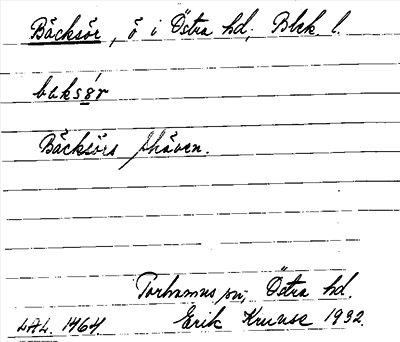 Bäcksör, ö i Östra hd, Blek l.
baks8́r
Bäcksörs skären.
Torhamns sn, Östra hd.
LAL. 1464. Erik Kruuse 1932.